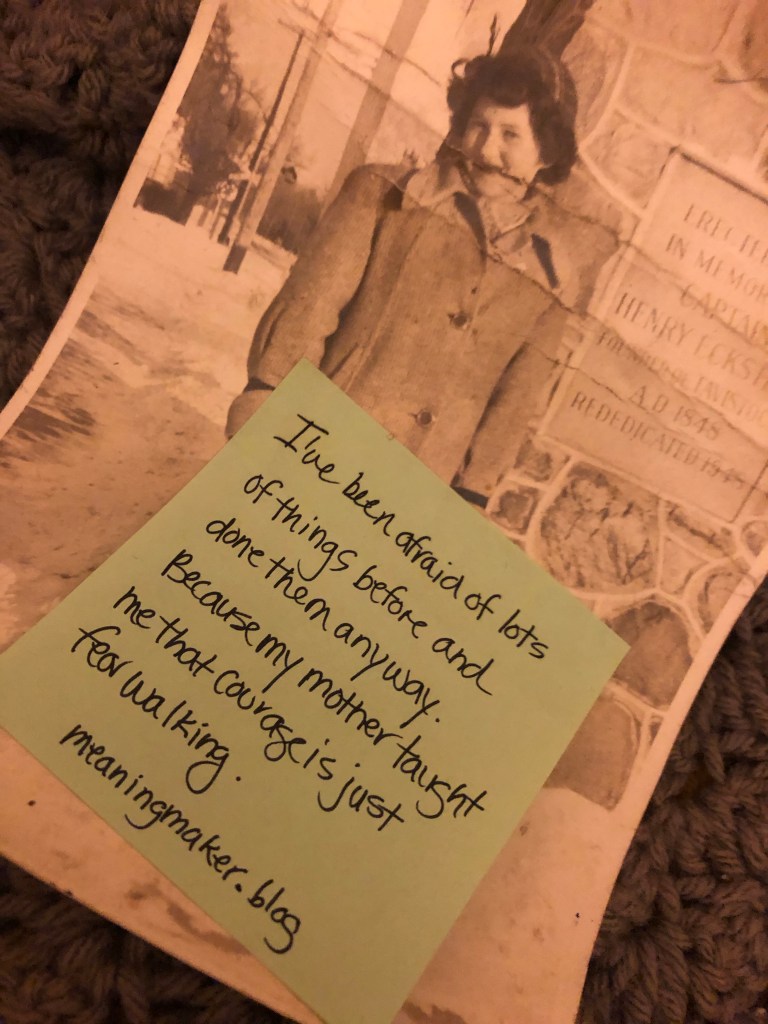 IN MEMOR
CAPTAIN
HENRY ECKST
FOUNDER OF
A.D 1848
REDEDICATED
I've been afraid of lots
of things before and
done them anyway.
Because my mother taught
me that courage is just
fear walking.
meaningmaker.blog